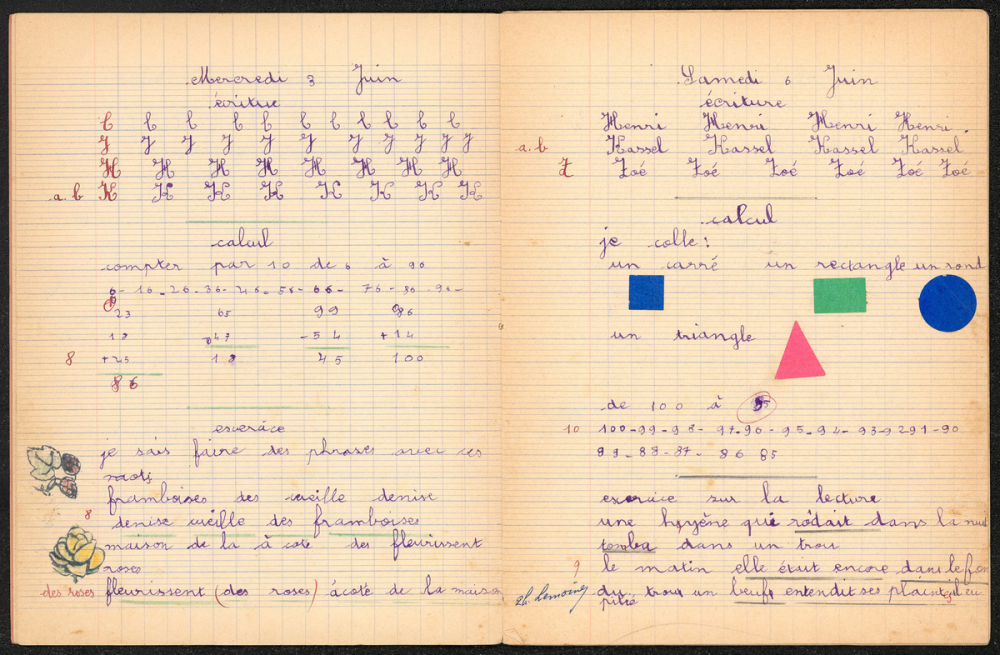 Mercredi 3 Juin
écriture
C C C C C C C C C C
J J J J J J J J J J
H H H H H H H H
a. b K K K K K K K K
calcul
compter par 10 de 6 à 96
6 - 16 - 26 - 36 - 46 - 56 - 66 - 76 - 86 - 96 -
23 65 99 86
18 - 47 - 54 + 14
8 + 45 18 45 100
86
exercice
je sais faire des phrases avec ces
mots
framboises des cueille denise
8 denise cueille des framboises
maison de la à coté des fleurissent
roses
des roses fleurissent (des roses) à coté de la maison
Samedi 6 Juin
écriture
Henri Henri Henri Henri
a. b Kassel Kassel Kassel Kassel
Z Zoé Zoé Zoé Zoé Zoé Zoé
calcul
je colle :
un carré un rectangle un rond
un triangle
de 100 à 85
10 100 - 99 - 98 - 97 - 96 - 95 - 94 - 93 92 91 - 90
89 - 88 - 87 - 86 85
exercice sur la lecture
une hyène qui rôdait dans la nuit
tomba dans un trou
9 le matin elle était encore dans le fon
du trou un bœuf entendit ses plaintes il eu
pitié